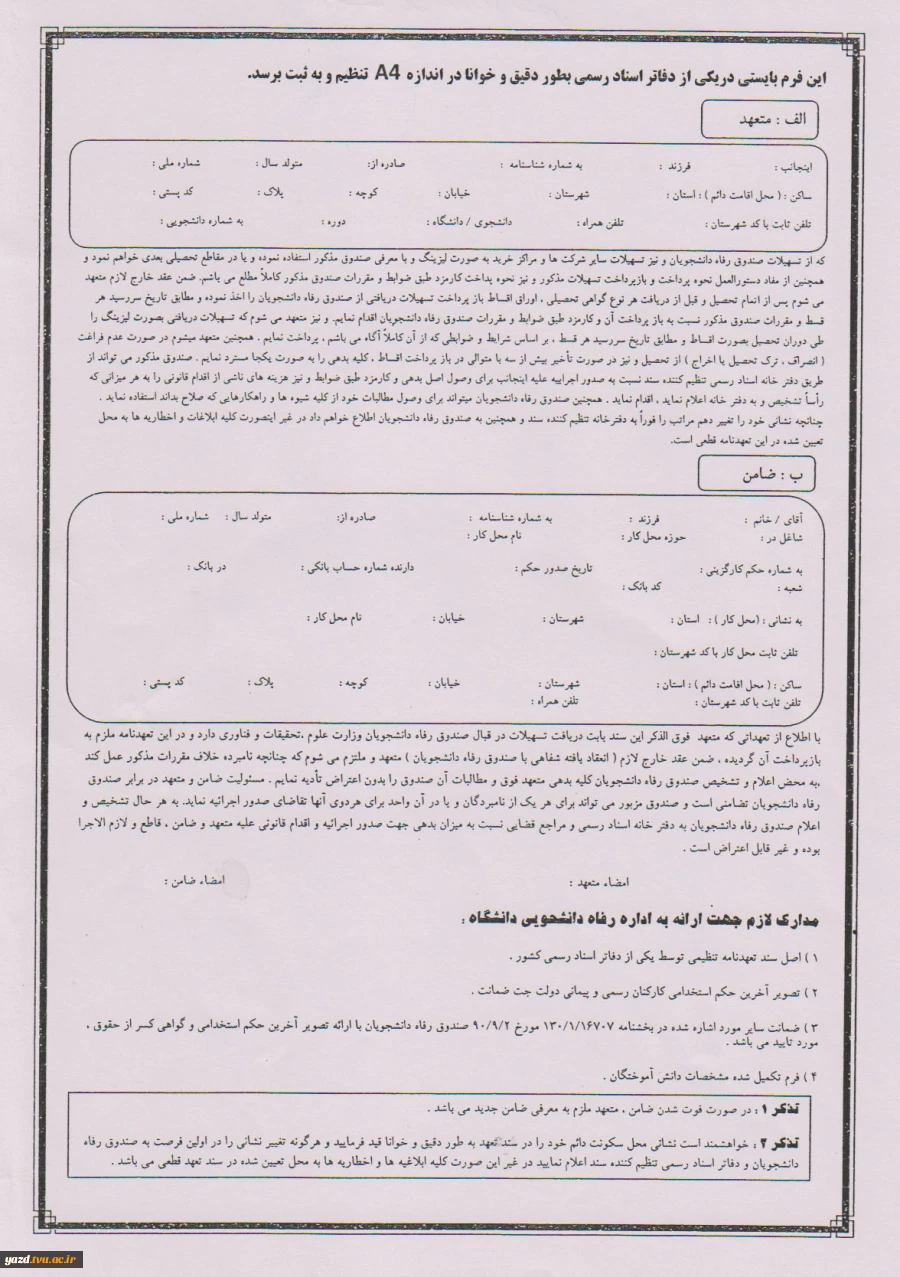 این فرم بایستی دریکی از دفاتر اسناد رسمی بطور دقیق و خوانا در اندازه A4 تنظیم و به ثبت برسد.
الف : متعهد
اینجانب : فرزند : به شماره شناسنامه : صادره از: متولد سال : شماره ملی :
ساکن : ( محل اقامت دائم ) : استان : شهرستان : خیابان : کوچه : پلاک : کد پستی :
تلفن ثابت با کد شهرستان : تلفن همراه : دانشجوی / دانشگاه : دوره : به شماره دانشجویی :
که از تسهیلات صندوق رفاه دانشجویان و نیز تسهیلات سایر شرکت ها و مراکز خرید به صورت لیزینگ و با معرفی صندوق مذکور استفاده نموده و یا در مقاطع تحصیلی بعدی خواهم نمود و
همچنین از مفاد دستورالعمل نحوه پرداخت و بازپرداخت تسهیلات مذکور و نیز نحوه پداخت کارمزد طبق ضوابط و مقررات صندوق مذکور کاملاً مطلع می باشم. ضمن عقد خارج لازم متعهد
می شوم پس از اتمام تحصیل و قبل از دریافت هر نوع گواهی تحصیلی ، اوراق اقساط باز پرداخت تسهیلات دریافتی از صندوق رفاه دانشجویان را اخذ نموده و مطابق تاریخ سررسید هر
قسط و مقررات صندوق مذکور نسبت به باز پرداخت آن و کارمزد طبق ضوابط و مقررات صندوق رفاه دانشجویان اقدام نمایم. و نیز متعهد می شوم که تسهیلات دریافتی بصورت لیزینگ را
طی دوران تحصیل بصورت اقساط و مطابق تاریخ سررسید هر قسط ، بر اساس شرایط و ضوابطی که از آن کاملاً آگاه می باشم ، پرداخت نمایم . همچنین متعهد میشوم در صورت عدم فراغت
( انصراف ، ترک تحصیل یا اخراج ) از تحصیل و نیز در صورت تأخیر بیش از سه با متوالی در باز پرداخت اقساط ، کلیه بدهی را به صورت یکجا مسترد نمایم . صندوق مذکور می تواند از
طریق دفتر خانه اسناد رسمی تنظیم کننده سند نسبت به صدور اجراییه علیه اینجانب برای وصول اصل بدهی و کارمزد طبق ضوابط و نیز هزینه های ناشی از اقدام قانونی را به هر میزانی که
رأساً تشخیص و به دفتر خانه اعلام نماید ، اقدام نماید . همچنین صندوق رفاه دانشجویان میتواند برای وصول مطالبات خود از کلیه شیوه ها و راهکارهایی که صلاح بداند استفاده نماید .
چنانچه نشانی خود را تغییر دهم مراتب را فوراً به دفترخانه تنظیم کننده سند و همچنین به صندوق رفاه دانشجویان اطلاع خواهم داد در غیر اینصورت کلیه ابلاغات و اخطاریه ها به محل
تعیین شده در این تعهدنامه قطعی است.
ب : ضامن
آقای / خانم : فرزند : به شماره شناسنامه : صادره از: متولد سال : شماره ملی :
شاغل در : حوزه محل کار : نام محل کار :
به شماره حکم کارگزینی : تاریخ صدور حکم : دارنده شماره حساب بانکی : در بانک :
شعبه : کد بانک :
به نشانی : (محل کار ) : استان : شهرستان : خیابان : نام محل کار :
تلفن ثابت محل کار با کد شهرستان :
ساکن : ( محل اقامت دائم ) : استان : شهرستان : خیابان : کوچه : پلاک : کد پستی :
تلفن ثابت با کد شهرستان : تلفن همراه :
با اطلاع از تعهداتی که متعهد فوق الذکر این سند بابت دریافت تسهیلات در قبال صندوق رفاه دانشجویان وزارت علوم ،تحقیقات و فناوری دارد و در این تعهدنامه ملزم به
بازپرداخت آن گردیده ، ضمن عقد خارج لازم ( انعقاد یافته شفاهی با صندوق رفاه دانشجویان ) متعهد و ملتزم می شوم که چنانچه نامبرده خلاف مقررات مذکور عمل کند
،به محض اعلام و تشخیص صندوق رفاه دانشجویان کلیه بدهی متعهد فوق و مطالبات آن صندوق را بدون اعتراض تأدیه نمایم . مسئولیت ضامن و متعهد در برابر صندوق
رفاه دانشجویان تضامنی است و صندوق مزبور می تواند برای هر یک از نامبردگان و یا در آن واحد برای هردوی آنها تقاضای صدور اجرائیه نماید. به هر حال تشخیص و
اعلام صندوق رفاه دانشجویان به دفتر خانه اسناد رسمی و مراجع قضایی نسبت به میزان بدهی جهت صدور اجرائیه و اقدام قانونی علیه متعهد و ضامن ، قاطع و لازم الاجرا
بوده و غیر قابل اعتراض است .
امضاء متعهد : امضاء ضامن :
مدارک لازم جهت ارائه به اداره رفاه دانشجویی دانشگاه :
۱ ) اصل سند تعهدنامه تنظیمی توسط یکی از دفاتر اسناد رسمی کشور .
۲ ) تصویر آخرین حکم استخدامی کارکنان رسمی و پیمانی دولت جت ضمانت .
۳ ) ضمانت سایر مورد اشاره شده در بخشنامه ۱۳۰/۱/۱۶۷۰۷ مورخ ۹۰/۹/۲ صندوق رفاه دانشجویان با ارائه تصویر آخرین حکم استخدامی و گواهی کسر از حقوق ،
مورد تایید می باشد .
۴ ) فرم تکمیل شده مشخصات دانش آموختگان .
تذکر ۱ : در صورت فوت شدن ضامن ، متعهد ملزم به معرفی ضامن جدید می باشد .
تذکر ۲ : خواهشمند است نشانی محل سکونت دائم خود را در سند تعهد به طور دقیق و خوانا قید فرمایید و هرگونه تغییر نشانی را در اولین فرصت به صندوق رفاه
دانشجویان و دفاتر اسناد رسمی تنظیم کننده سند اعلام نمایید در غیر این صورت کلیه ابلاغیه ها و اخطاریه ها به محل تعیین شده در سند تعهد قطعی می باشد .
yazd.tvu.ac.ir